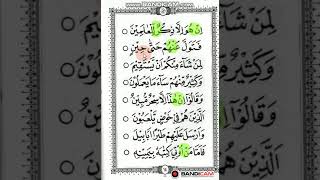 WWW.BANDICAM.COM
اِنْ هُوَ اِلَّا ذِكْرٌ لِّلْعٰلَمِيْنَ
فَتَوَلَّ عَنْهُمْ حَتّٰى حِيْنٍ
لِمَنْ شَآءَ مِنْكُمْ اَنْ يَّسْتَقِيْمَ
وَكَثِيْرٌ مِّنْهُمْ سَآءَ مَا يَعْمَلُوْنَ
وَقَالُوْٓا اِنْ هٰذَآ اِلَّا سِحْرٌ مُّبِيْنٌ
الَّذِيْنَ هُمْ فِيْ خَوْضٍ يَّلْعَبُوْنَ
وَاَرْسَلَ عَلَيْهِمْ طَيْرًا اَبَابِيْلَ
فَاَمَّا مَنْ اُوْتِيَ كِتٰبَهٗ بِيَمِيْنِهٖ
BANDICAM